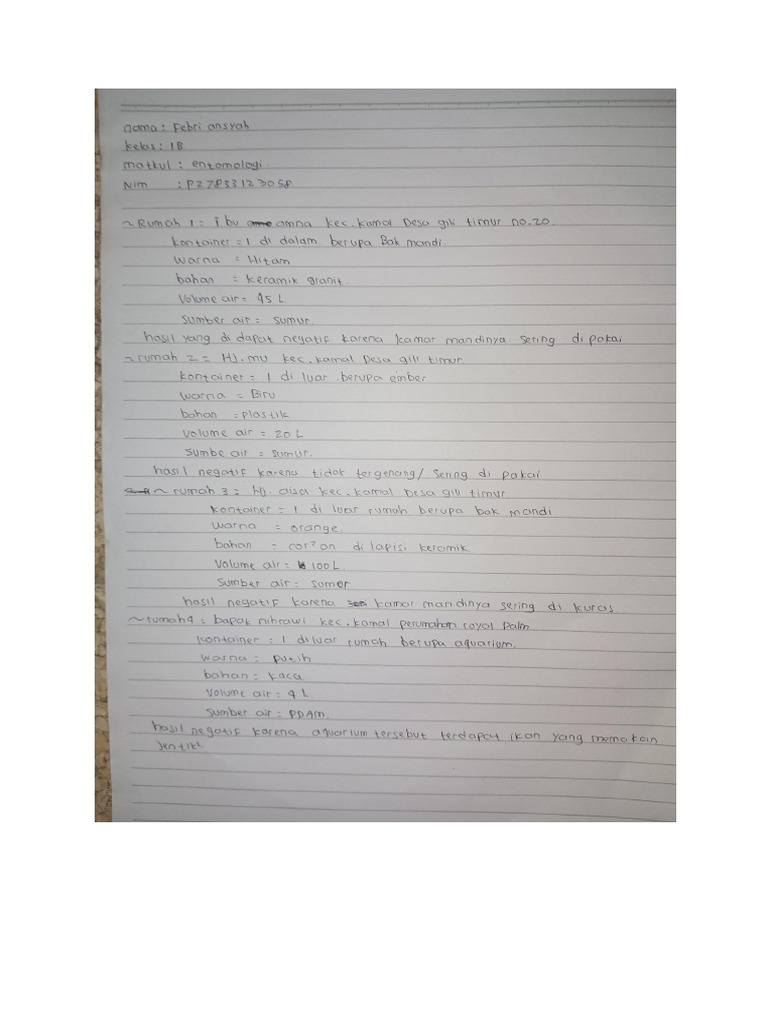 nama : Febri ansyah
kelas : 1B
matkul : entomologi
Nim : P27833123058
~ Rumah 1 = Ibu amna kec. kamal Desa gili timur no.20.
kontainer = 1 di dalam berupa Bak mandi.
warna = Hitam
bahan = keramik granit.
Volume air = 45 L
Sumber air = sumur.
hasil yang di dapat negatif karena kamar mandinya sering di pakai
~ rumah 2 = Hj. mu kec. kamal Desa gili timur.
kontainer = 1 di luar berupa ember
warna = Biru
bahan = plastik
volume air = 20 L
Sumbe air = sumur.
hasil negatif karena tidak tergenang / sering di pakai
~ rumah 3 = Hj. aisa kec. kamal Desa gili timur
kontainer = 1 di luar rumah berupa bak mandi
warna = orange.
bahan = cor²an di lapisi keramik
Volume air = 100 L.
Sumber air = sumor
hasil negatif karena kamar mandinya sering di kuras
~ rumah 4 = bapak nihrawi kec. kamal perumahan royal palm
kontainer = 1 diluar rumah berupa aquarium.
warna = putih
bahan = kaca
Volume air = 4 L
Sumber air = PDAm.
hasil negatif karena aquarium tersebut terdapat ikan yang memakan
jentik²